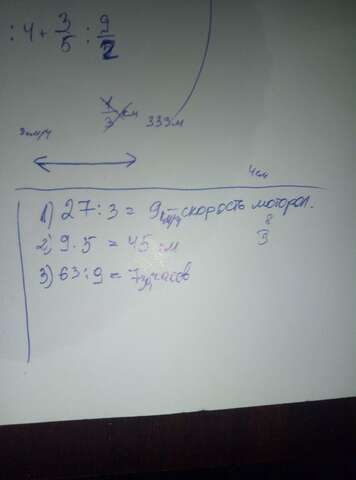 : 4 + 3/5 : 9/2
1/3 см
333 м
3 км/ч
4 см
1) 27 : 3 = 9 км/ч скорость моторол.
8
2) 9 · 5 = 45 : м
3
3) 63 : 9 = 7 часов